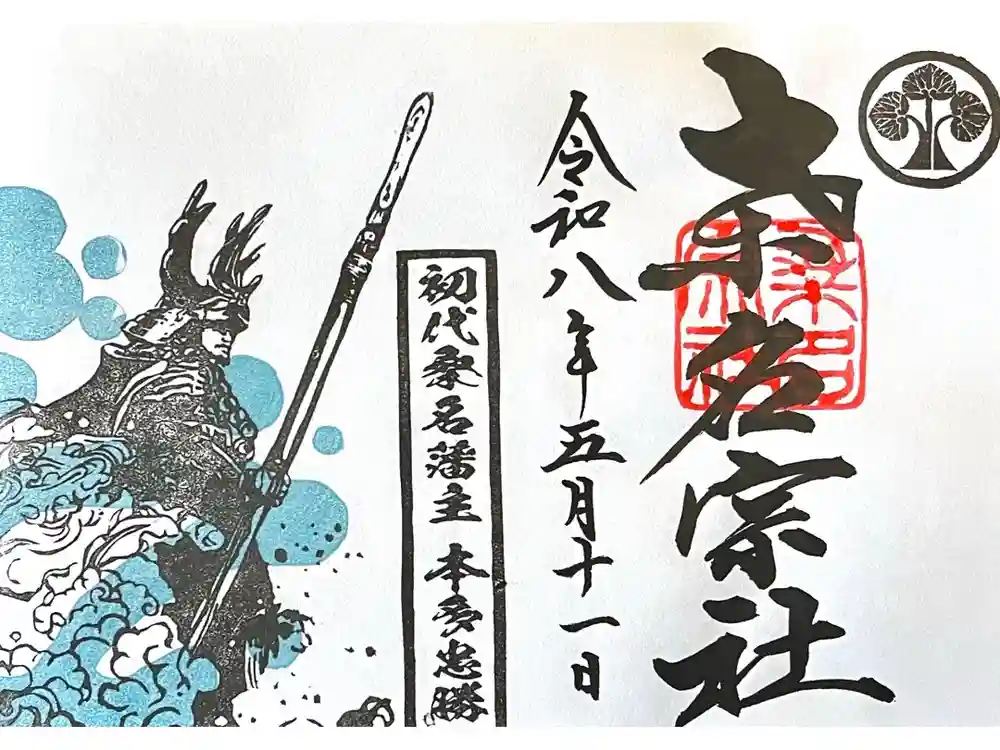 桑名宗社
令和八年五月十一日
初代桑名藩主 本多忠勝